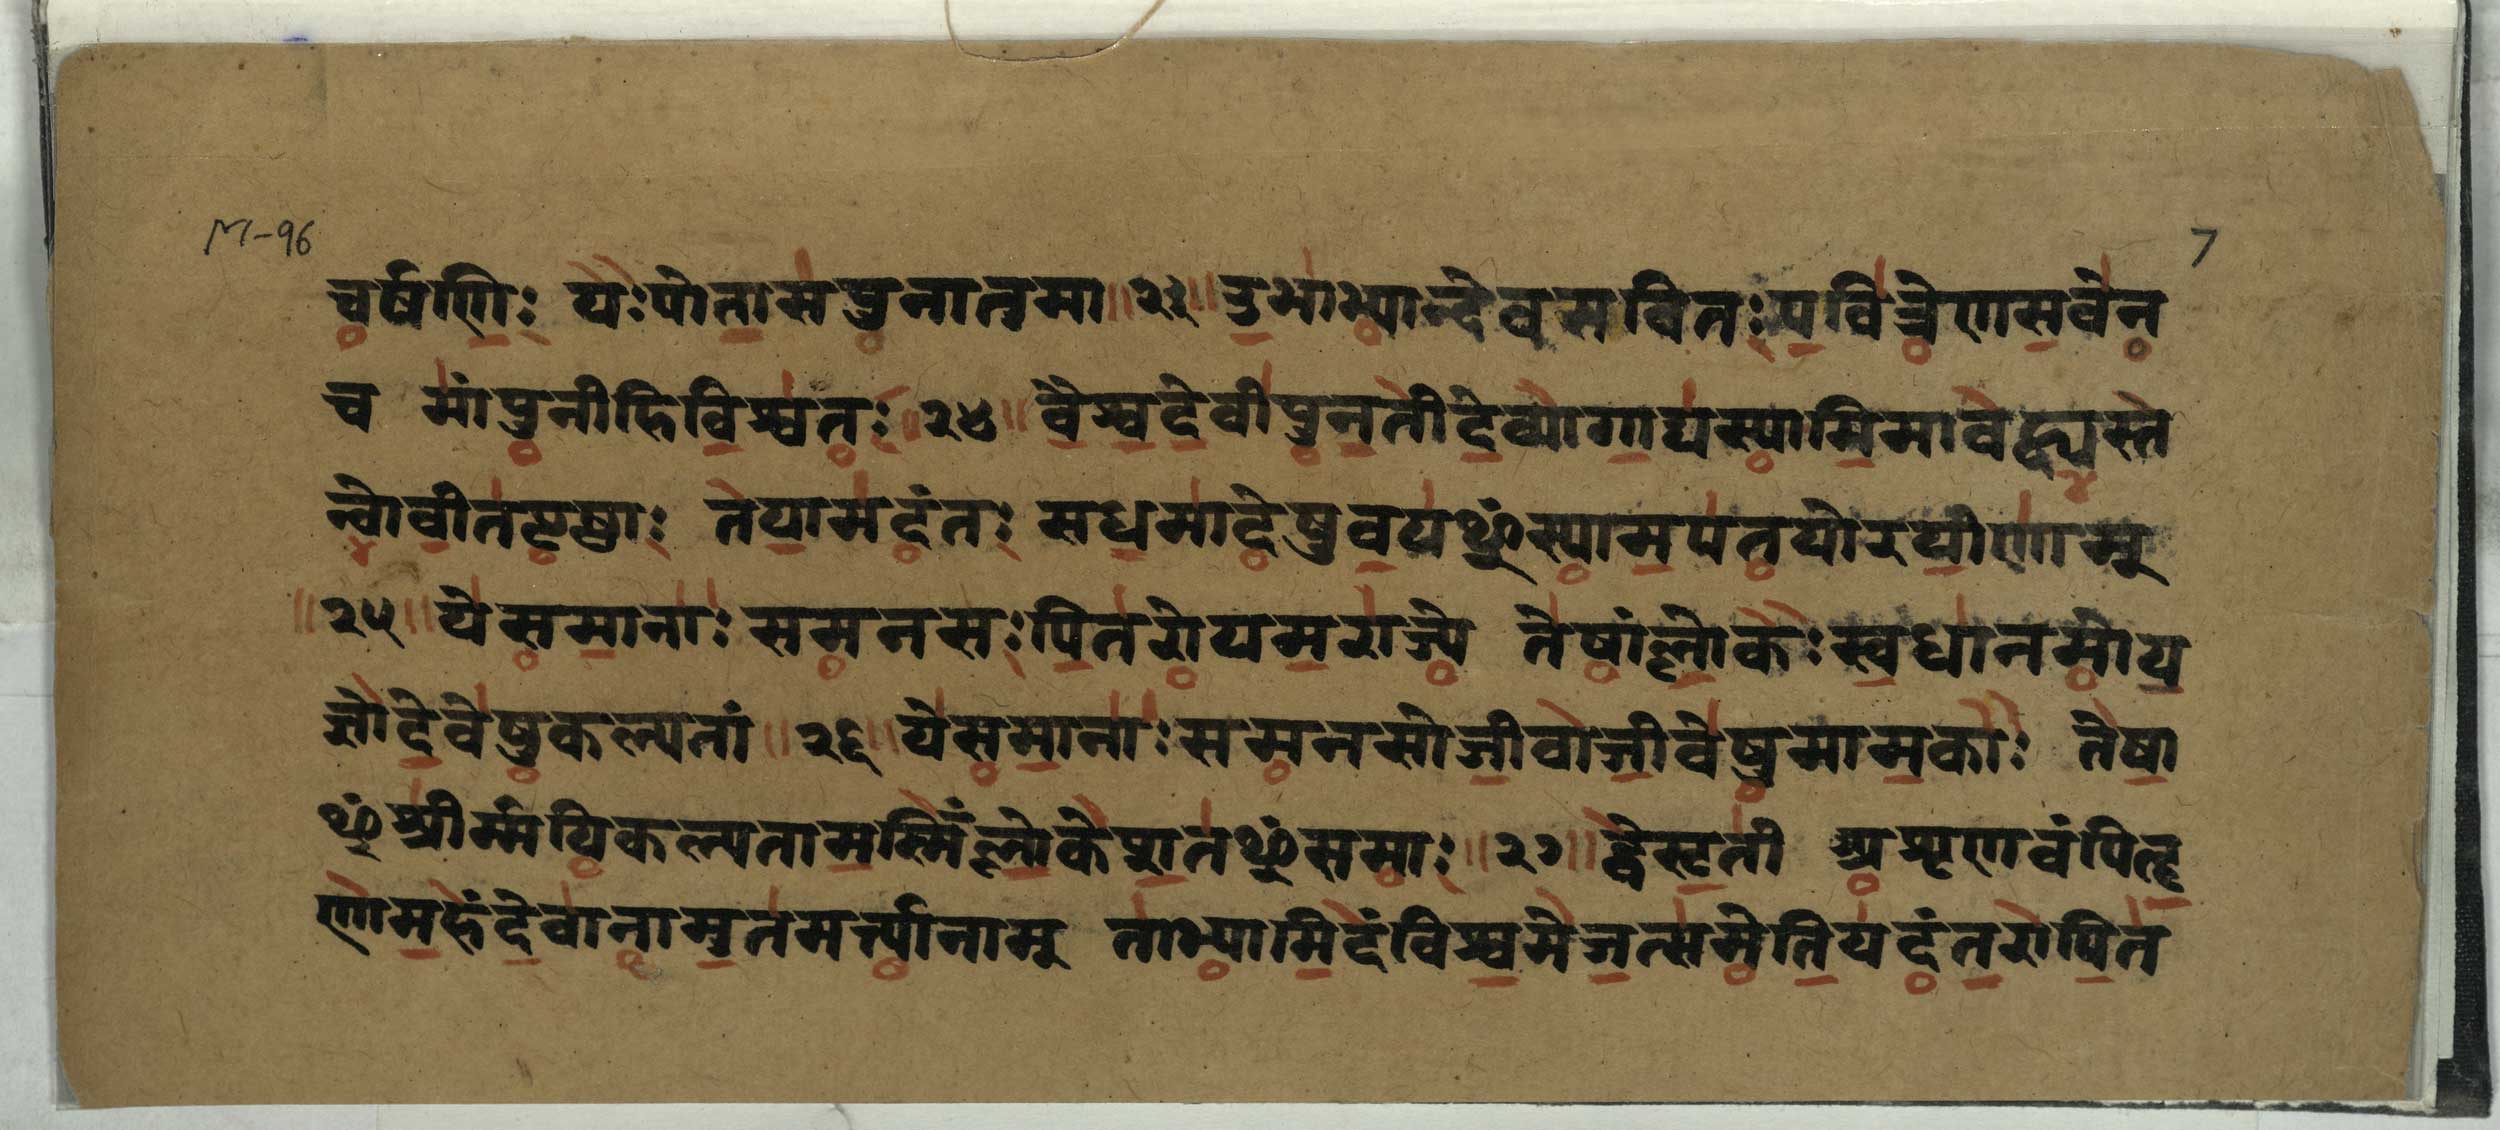 M-96
7
चर्षणिः यःपोतासपुनातुमा ॥२३॥ उभाभ्यान्देवसवितःपवित्रेणसवेन
च मांपुनीहिविश्वतः ॥२४॥ वैश्वदेवीपुनतीदेव्यागाद्यस्यामिमावह्व्यस्त
न्वोवीतपृष्ठाः तयामदंतः सधमादेषुवयᳪस्यामपतयोरयीणाम्
॥२५॥ येसमानाःसमनसःपितरोयमराज्ये तेषांल्लोकःस्वधानमोय
ज्ञोदेवेषुकल्पतां ॥२६॥ येसमानाःसमनसोजीवाजीवेषुमामकाः तेषा
ᳪश्रीर्म्मयिकल्पतामस्मिँल्लोकेशतᳪसमाः ॥२७॥ द्वेसृती अशृणवंपितॄ
णामहंदेवानामुतमर्त्त्यानाम् ताभ्यामिदंविश्वमेजत्समेतियदंतरापित